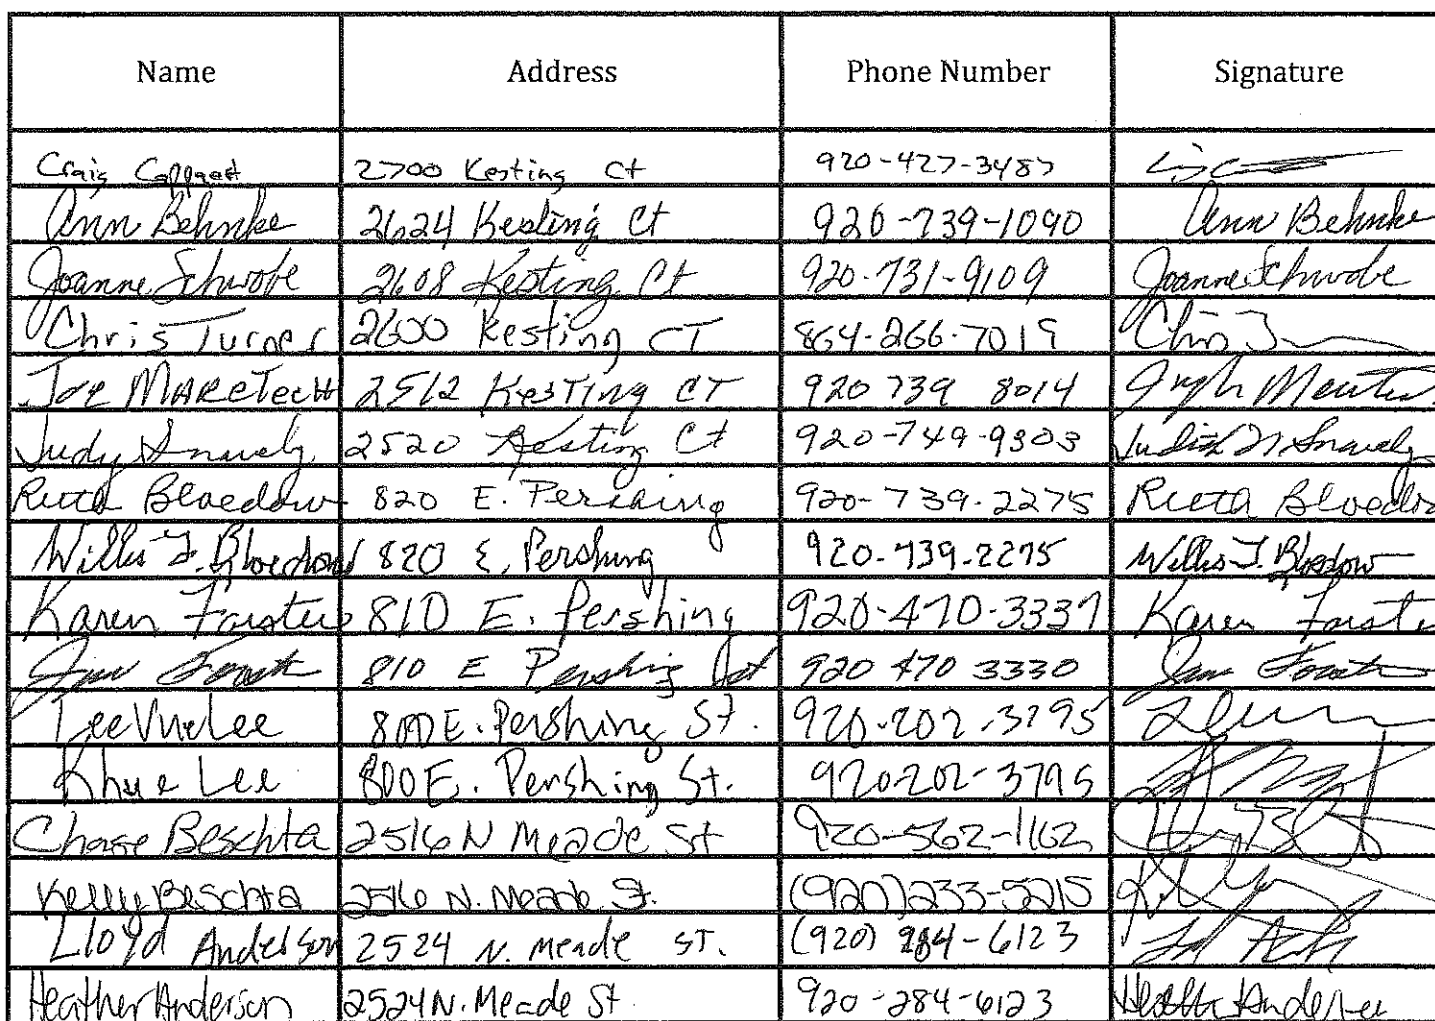 Name Address Phone Number Signature
Craig 2700 Kesting Ct 920-427-3487
Ann Behnke 2624 Kesting Ct 920-739-1090 Ann Behnke
Joanne Schwobe 2608 Kesting Ct 920-731-9109 Joanne Schwobe
Chris Turner 2600 Kesting CT 864-266-7019 Chris
Joe 2512 KesTing CT 920 739 8014
Judy Snavely 2520 Kesting Ct 920-749-9303 Snavely
Ruth Bloedow 820 E. Pershing 920-739-2275 Ruth Bloedow
Willis J. Bloedow 820 E. Pershing 920-739-2275 Willis J. Bloedow
Karen 810 E. Pershing 920-470-3337 Karen
810 E Pershing 920 470 3330
Lee Vue Lee 800 E. Pershing St. 920-202-3795
Khue Lee 800 E. Pershing St. 920-202-3795
Chase Beschta 2516 N Meade St 920-562-1162
Kelly Beschta 2516 N. Meade St. (920)233-5215
Lloyd Anderson 2524 N. Meade ST. (920) 284-6123
Heather Anderson 2524 N. Meade St. 920-284-6123 Heather Anderson